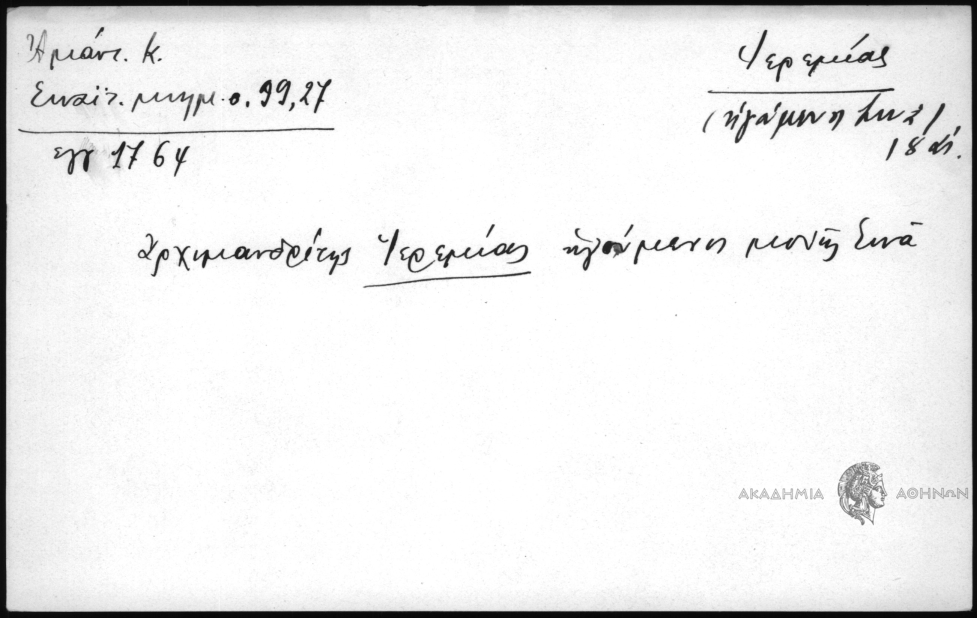 Ἀμάντ. Κ.
Σιναϊτ. μνημ. σ. 99,27
ἐγγ 1764
Ἱερεμίας
(ἡγούμενος Σινᾶ)
18 αἰ.
Ἀρχιμανδρίτης Ἱερεμίας ἡγούμενος μονῆς Σινᾶ
ΑΚΑΔΗΜΙΑ ΑΘΗΝΩΝ